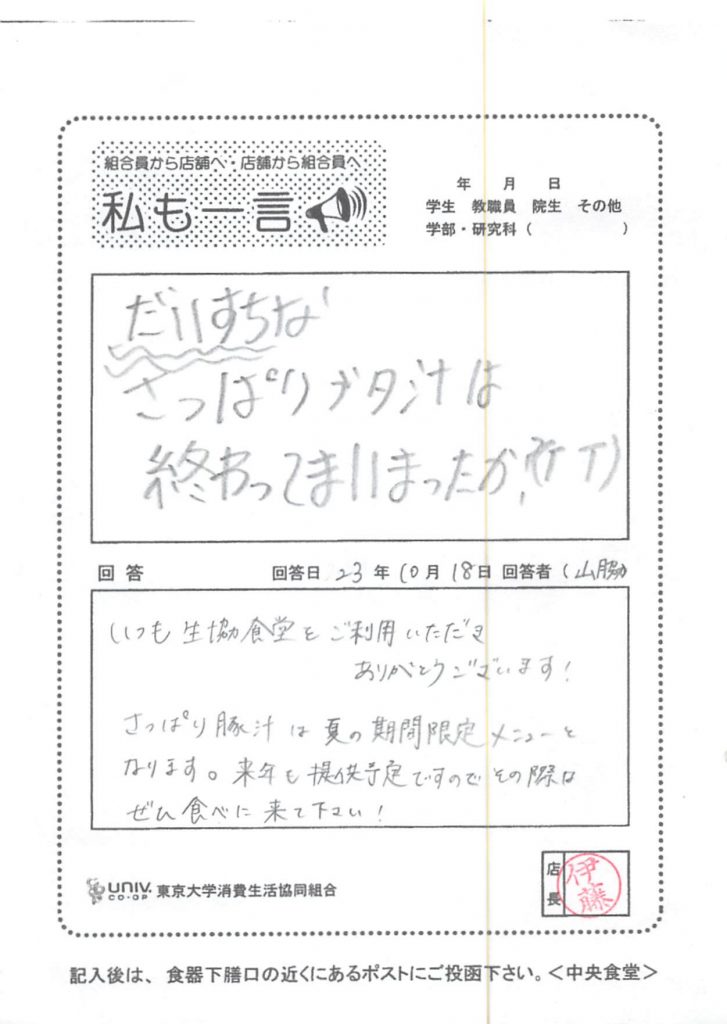 組合員から店舗へ・店舗から組合員へ
私も一言
年 月 日
学生 教職員 院生 その他
学部・研究科( )
だいすきな
さっぱりブタ汁は
終わってしまいまったか
回答 回答日 23年10月18日 回答者(山脇)
いつも生協食堂をご利用いただき
ありがとうございます!
さっぱり豚汁は夏の期間限定メニューと
なります。来年も提供予定ですのでその際は
ぜひ食べに来て下さい!
UNIV. CO-OP 東京大学消費生活協同組合
店長 伊藤
記入後は、食器下膳口の近くにあるポストにご投函下さい。<中央食堂>